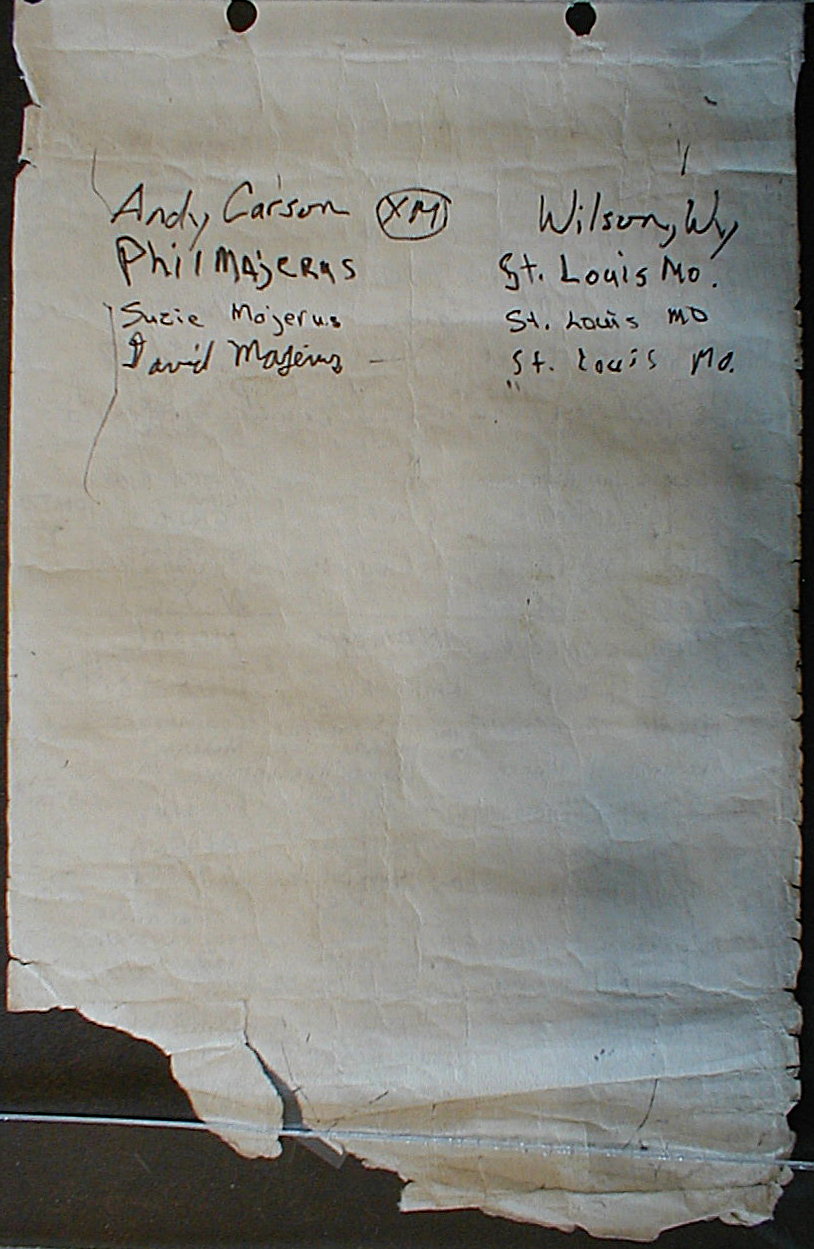 Andy Carson XM Wilson, Wy
Phil Majerus St. Louis Mo.
Suzie Majerus St. Louis MO
David Majerus — St. Louis Mo.